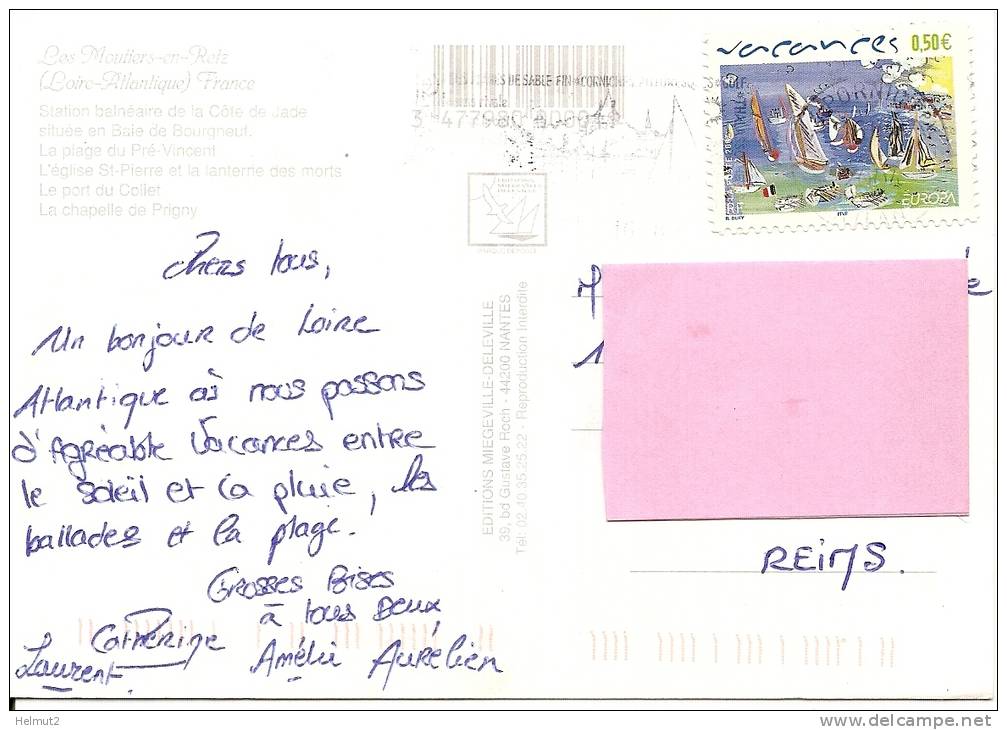 Les Moutiers-en-Retz
(Loire-Atlantique) France
Station balnéaire de la Côte de Jade
située en Baie de Bourgneuf.
La plage du Pré-Vincent
L'église St-Pierre et la lanterne des morts
Le port du Collet
La chapelle de Prigny
DE SABLE FIN
3 477980
vacances 0,50€
EUROPA
R. DUFY
ITVF
EDITIONS MIEGEVILLE-DELEVILLE
39, bd Gustave Roch - 44200 NANTES
Tél: 02.40.35.25.22 - Reproduction Interdite
Chers tous,
Un bonjour de Loire
Atlantique où nous passons
d'Agréable Vacances entre
le soleil et la pluie, les
ballades et la plage.
Grosses Bises
à tous Deux,
Catherine
Laurent. Amélie Aurélien
REIMS.
Helmut2
www.delcampe.net